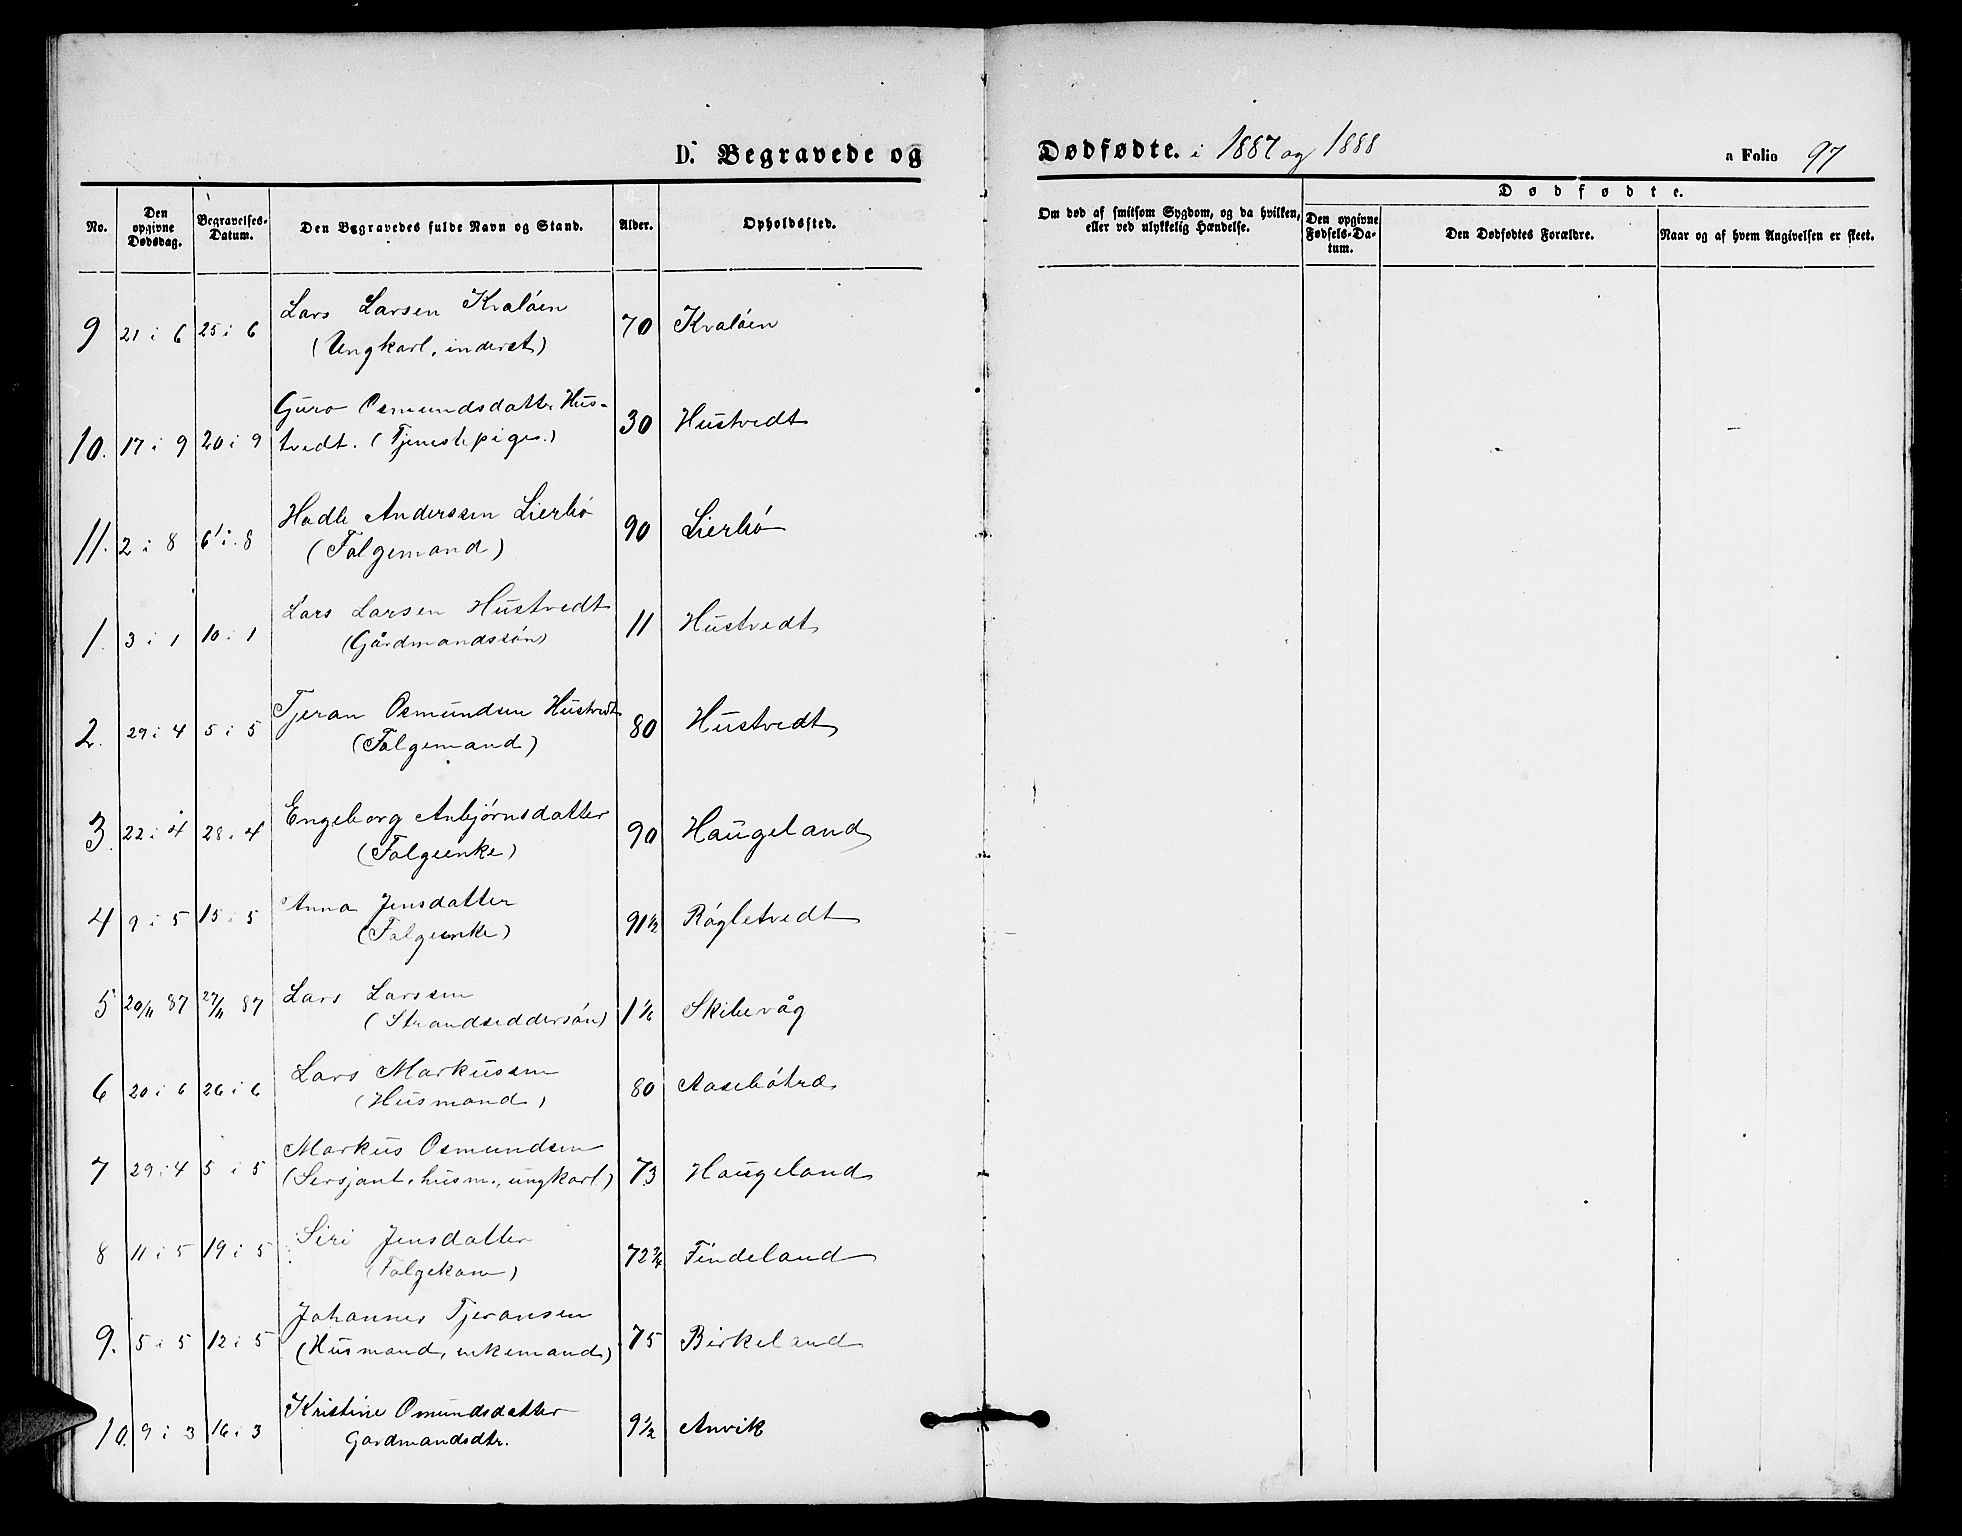 D. Begravede og Dødfødte. i 1887 og 1888 a Folio 97
No. Den opgivne Dødsdag. Begravelses-Datum. Den Begravedes fulde Navn og Stand. Alder. Opholdssted. Om død af smitsom Sygdom, og da hvilken, eller ved ulykkelig Hændelse. Dødfødte. Den opgivne Fødsels-Datum. Den Dødfødtes Forældre. Naar og af hvem Angivelsen er skeet.
9 21 i 6 25 i 6 Lars Larsen Kvaløen 70 Kvaløen
(Ungkarl, inderst)
10. 17 i 9 20 i 9 Guro Osmundsdatter Hus- 30 Hustvedt
tvedt. (Tjenestepige.)
11. 2 i 8 6 i 8 Hadle Anderssen Lierbø 90 Lierbø
(Folgemand)
1. 3 i 1 10 i 1 Lars Larsen Hustvedt 11 Hustvedt
(Gårdmandssøn)
2. 29 i 4 5 i 5 Tjeran Osmundsen Hustvedt 80 Hustvedt
(Folgemand)
3. 22 i 4 28 i 4 Engeborg Anbjørnsdatter 90 Haugeland
(Folgeenke)
4 9 i 5 15 i 5 Anna Jensdatter 91 1/2 Røgletvedt
(Folgeenke)
5 20/11 87 27/11 87 Lars Larssen 1 1/6 Skibevåg
(Strandsiddersøn)
6 20 i 6 26 i 6 Lars Markussen 80 Aasebøtræ
(Husmand)
7 29 i 4 5 i 5 Markus Osmundsen 73 Haugeland
(Sersjant, husm., ungkarl)
8 11 i 5 19 i 5 Siri Jensdatter 72 3/4 Findeland
(Folgekone)
9. 5 i 5 12 i 5 Johannes Tjeransen 75 Birkeland
(Husmand, enkemand)
10. 9 i 3 16 i 3 Kristine Omundsdatter 9 1/2 Anvik
Gardmandsdtr.